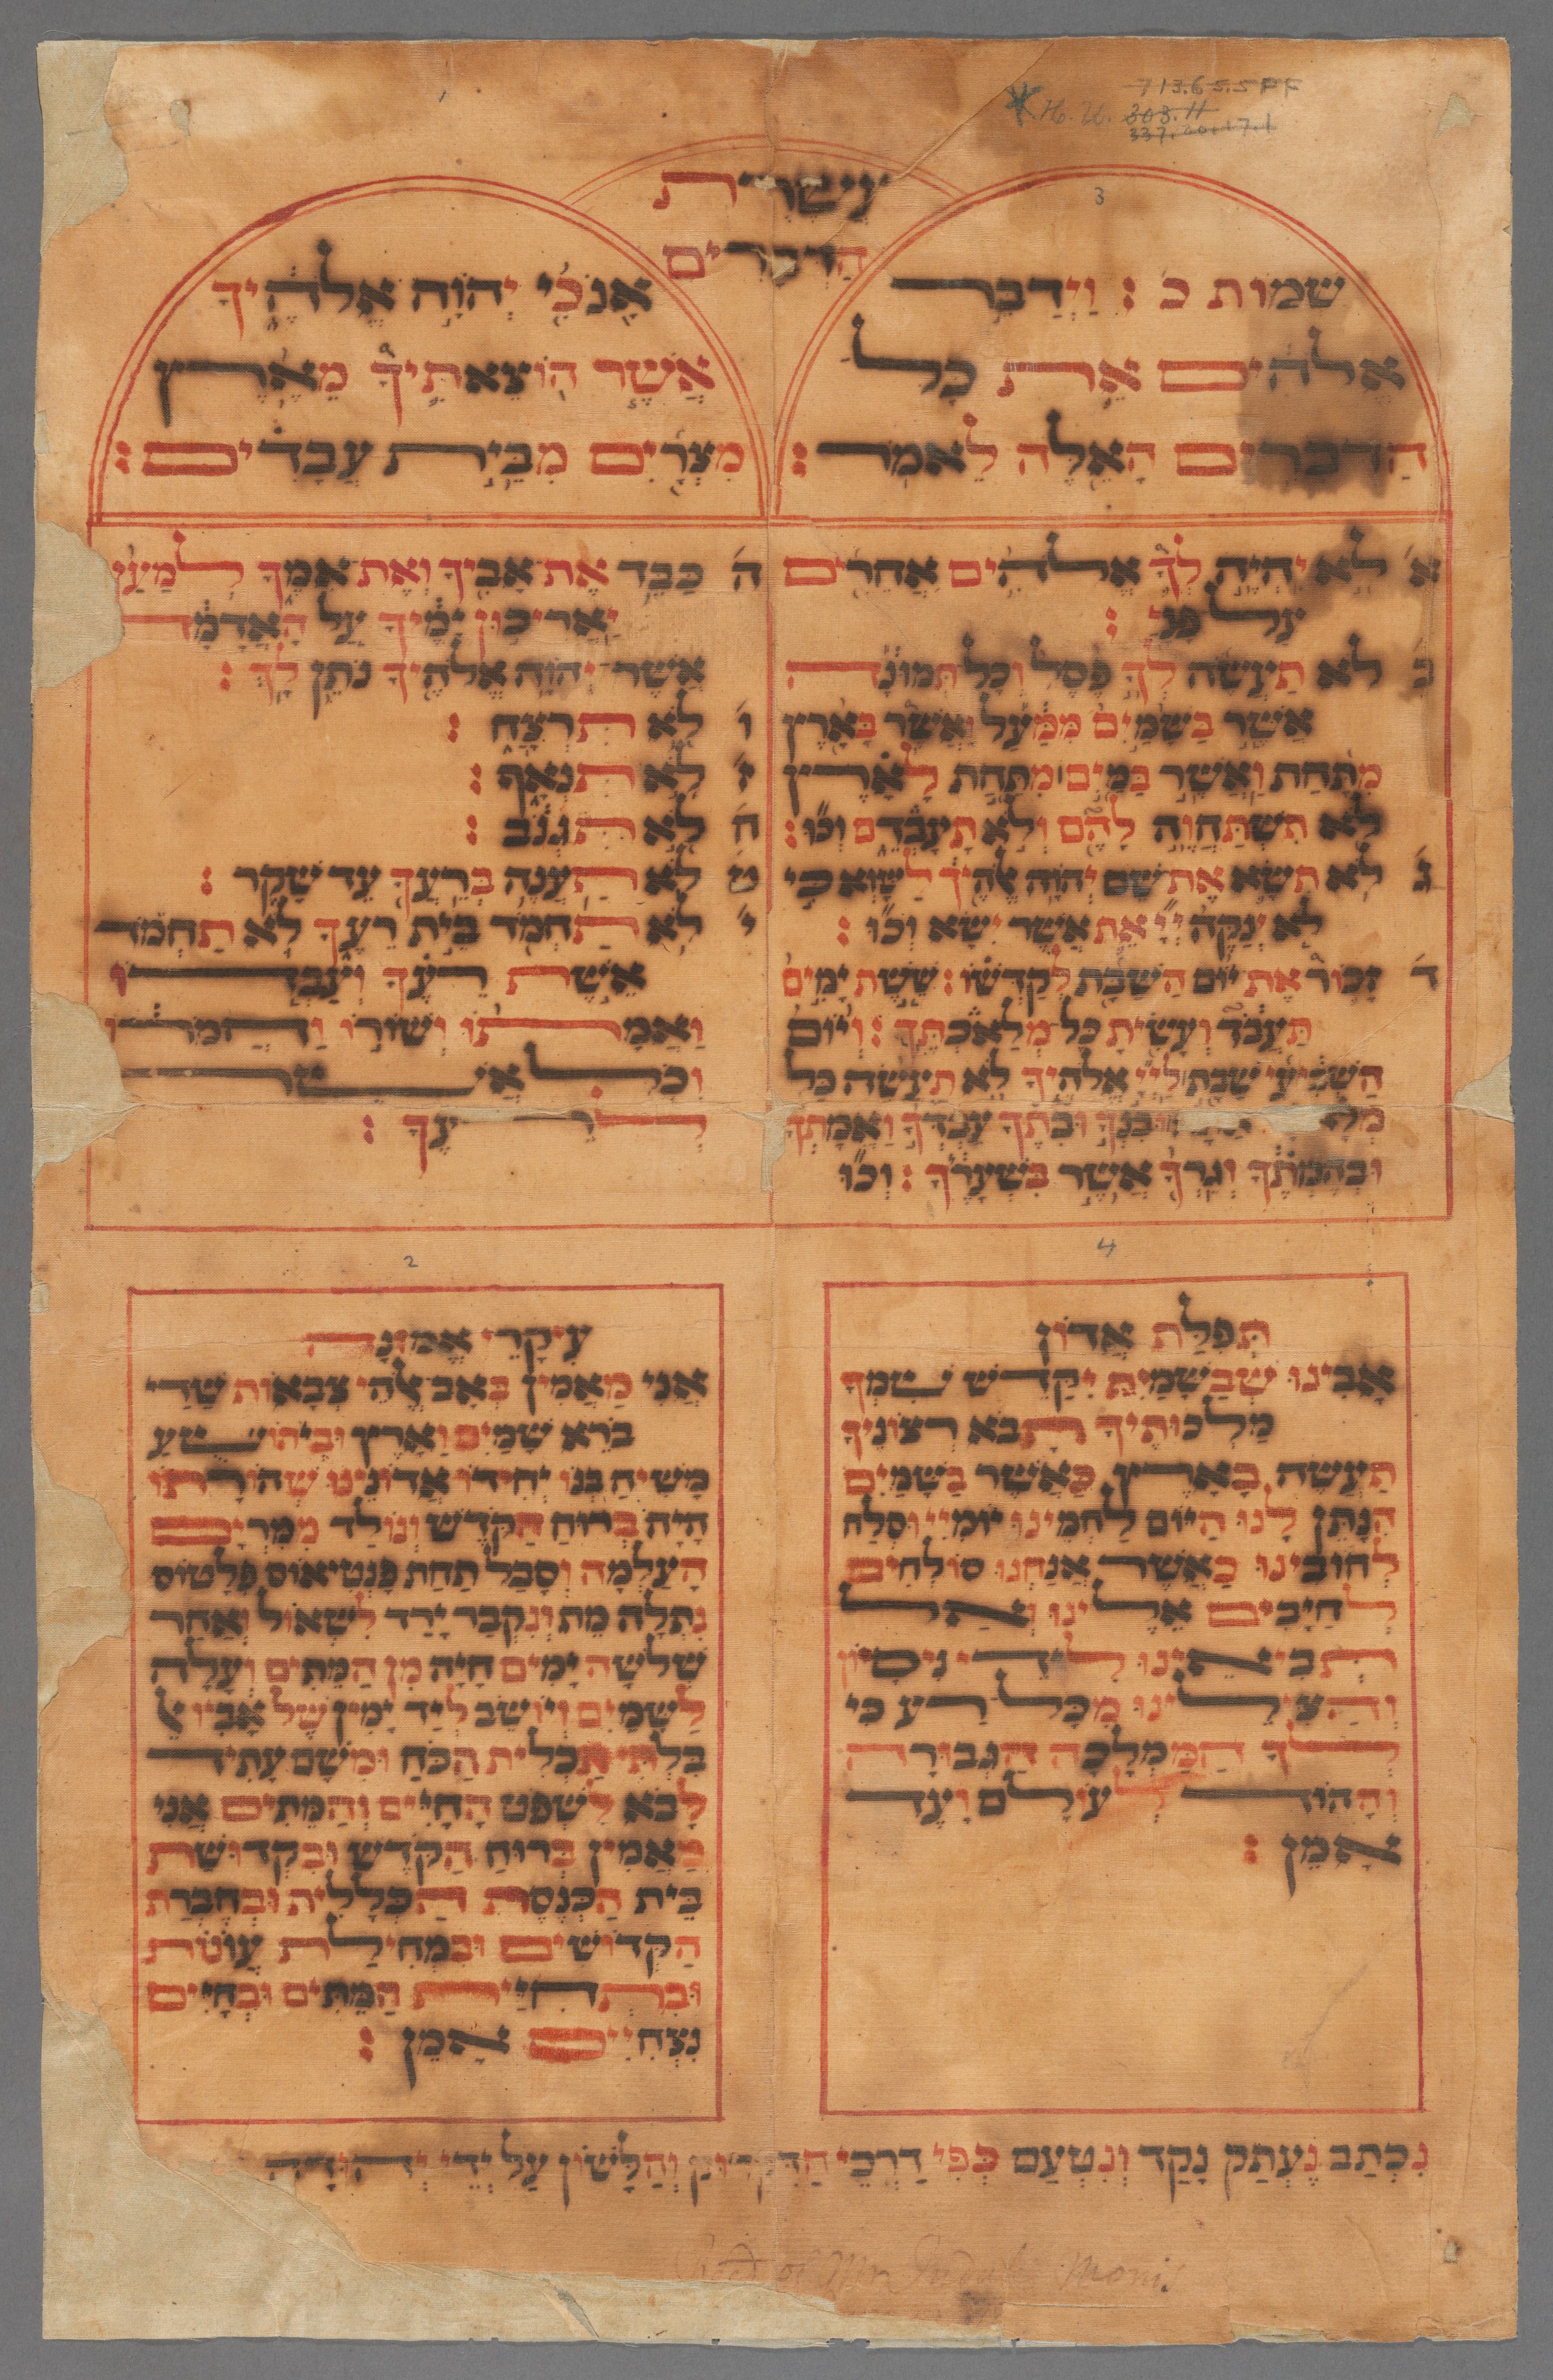 713.65.5PF
H. U. 303.11
337.20.17.1
3
עֲשֶׂרֶת
הַדְּבָרִים
שמות כ : וַיְדַבֵּר
אֱלֹהִים אֵת כָּל
הַדְּבָרִים הָאֵלֶּה לֵאמֹר :
אָנֹכִי יְהוָה אֱלֹהֶיךָ
אֲשֶׁר הוֹצֵאתִיךָ מֵאֶרֶץ
מִצְרַיִם מִבֵּית עֲבָדִים :
א לֹא יִהְיֶה לְךָ אֱלֹהִים אֲחֵרִים
עַל פָּנַי :
ב לֹא תַעֲשֶׂה לְךָ פֶסֶל וְכָל תְּמוּנָה
אֲשֶׁר בַּשָּׁמַיִם מִמַּעַל וַאֲשֶׁר בָּאָרֶץ
מִתַּחַת וַאֲשֶׁר בַּמַּיִם מִתַּחַת לָאָרֶץ
לֹא תִשְׁתַּחֲוֶה לָהֶם וְלֹא תָעָבְדֵם וְכוּ :
ג לֹא תִשָּׂא אֶת שֵׁם יְהוָה אֱלֹהֶיךָ לַשָּׁוְא כִּי
לֹא יְנַקֶּה יְיָ אֵת אֲשֶׁר יִשָּׂא וְכוּ :
ד זָכוֹר אֶת יוֹם הַשַּׁבָּת לְקַדְּשׁוֹ : שֵׁשֶׁת יָמִים
תַּעֲבֹד וְעָשִׂיתָ כָּל מְלַאכְתֶּךָ : וְיוֹם
הַשְּׁבִיעִי שַׁבָּת לַיְיָ אֱלֹהֶיךָ לֹא תַעֲשֶׂה כָל
וּבִנְךָ וּבִתֶּךָ עַבְדְּךָ וַאֲמָתְךָ
וּבְהֶמְתֶּךָ וְגֵרְךָ אֲשֶׁר בִּשְׁעָרֶיךָ : וְכוּ
ה כַּבֵּד אֶת אָבִיךָ וְאֶת אִמֶּךָ לְמַעַן
יַאֲרִיכוּן יָמֶיךָ עַל הָאֲדָמָה
אֲשֶׁר יְהוָה אֱלֹהֶיךָ נֹתֵן לָךְ :
ו לֹא תִרְצָח :
ז לֹא תִנְאָף :
ח לֹא תִגְנֹב :
ט לֹא תַעֲנֶה בְרֵעֲךָ עֵד שָׁקֶר :
י לֹא תַחְמֹד בֵּית רֵעֶךָ לֹא תַחְמֹד
אֵשֶׁת רֵעֶךָ וְעַבְדּוֹ
וַאֲמָתוֹ וְשׁוֹרוֹ וַחֲמֹרוֹ
וְכֹל אֲשֶׁר
לְרֵעֶךָ :
4
תְּפִלַּת אָדוֹן
אָבִינוּ שֶׁבַּשָּׁמַיִם יִקָּדֵשׁ שִׁמְךָ
מַלְכוּתֶיךָ תָּבֹא רְצוֹנֶיךָ
תַעֲשֶׂה בָּאָרֶץ כַּאֲשֶׁר בַּשָּׁמַיִם
הִנָּתֵן לָנוּ הַיּוֹם לַחְמֵינוּ יוֹמִיי וּסְלַח
לְחוֹבֵינוּ כַּאֲשֶׁר אֲנַחְנוּ סוֹלְחִים
לְחַיָּבִים אֵלֵינוּ וְאַל
תְּבִיאֵינוּ לִידֵי נִיסָיוֹן
וְהַצִּילֵינוּ מִכָּל רָע כִּי
לְךָ הַמַּמְלָכָה הַגְּבוּרָה
וְהַהוֹד לְעוֹלָם וָעֶד
אָמֵן :
2
עִיקְרֵי אֱמוּנָה
אֲנִי מַאֲמִין בְּאָב אֱלֹהֵי צְבָאוֹת שַׁדַּי
בֹּרֵא שָׁמַיִם וָאָרֶץ וּבִיהוֹשֻׁעַ
מָשִׁיחַ בְּנוֹ יְחִידוֹ אֲדוֹנֵינוּ שֶׁהוֹרָתוֹ
הָיָה בְּרוּחַ הַקֹּדֶשׁ וְנוֹלַד מִמִּרְיָם
הָעַלְמָה וְסָבַל תַּחַת פָּנְטִיאוֹס פִּלָטוֹס
נִתְלָה מֵת וְנִקְבַּר יָרַד לִשְׁאוֹל וְאַחַר
שְׁלֹשָׁה יָמִים חָיָה מִן הַמֵּתִים וְעָלָה
לַשָּׁמַיִם וְיוֹשֵׁב לְיַד יָמִין שֶׁל אָבִיו אֵל
בִּלְתִּי תַּכְלִית הַכֹּחַ וּמִשָּׁם עָתִיד
לָבֹא לִשְׁפֹּט הַחַיִּים וְהַמֵּתִים אֲנִי
מַאֲמִין בְּרוּחַ הַקֹּדֶשׁ וּבִקְדוּשַׁת
בֵּית הַכְּנֶסֶת הַכְּלָלִית וּבְחֶבְרַת
הַקְּדוֹשִׁים וּבִמְחִילַת עֲוֹנֹת
וּבִתְחִיַּית הַמֵּתִים וּבְחַיִּים
נִצְחִיִּים אָמֵן :
נִכְתַּב נֶעְתַּק נָקַד וְנִטְעַם כְּפִי דַּרְכֵי הַדִּקְדּוּק וְהַלָּשׁוֹן עַל יְדֵי יְהוּדָה
Rec'd of Mr Judah Monis